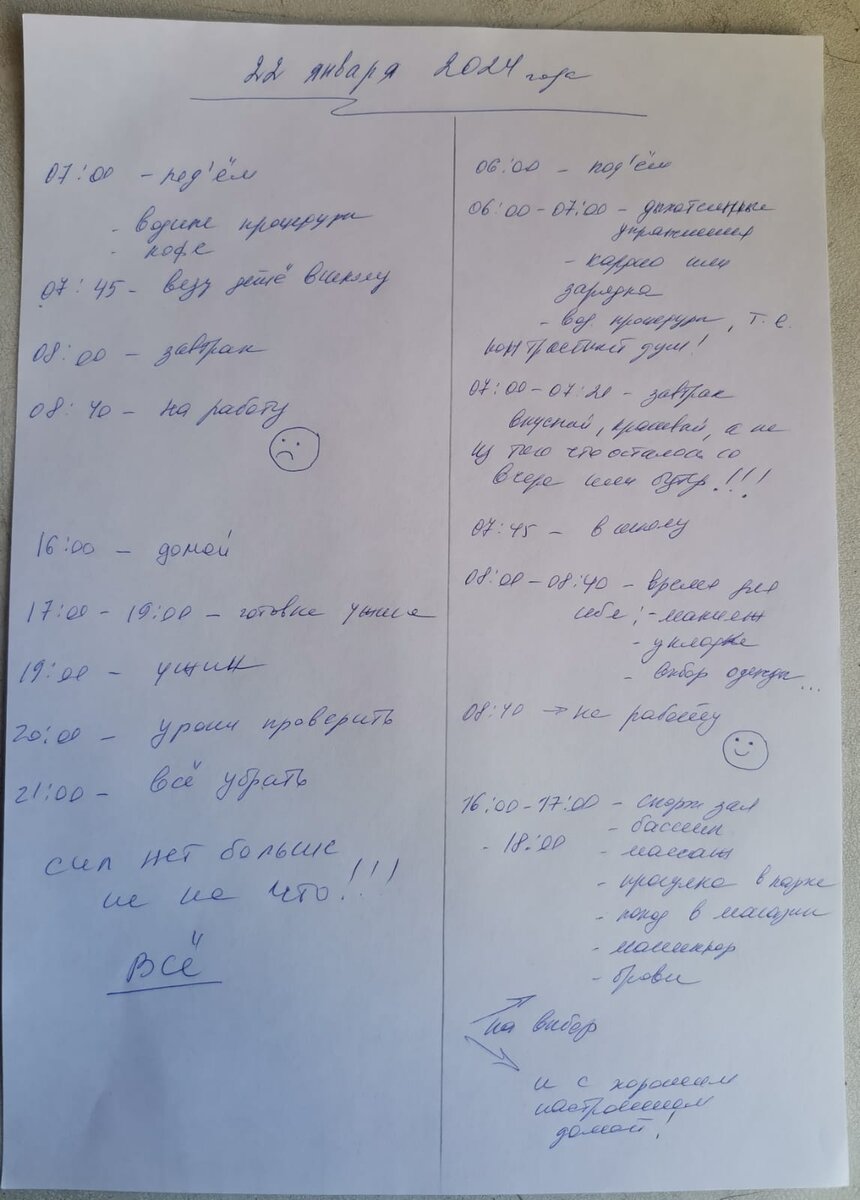 22 января 2024 года
07:00 - под'ём
- водные процедуры
- кофе
07:45 - везу детё в школу
08:00 - завтрак
08:40 - на работу
16:00 - домой
17:00 - 19:00 - готовка ужина
19:00 - ужин
20:00 - уроки проверить
21:00 - всё убрать
сил нет больше
не на что!!!
Всё
06:00 - под'ём
06:00 - 07:00 - дыхательные
упражнения
- кардио или
зарядка
- вод. процедуры, т.е.
контрастный душ!
07:00 - 07:20 - завтрак
вкусный, красивый, а не
из того что осталось со
вчера или бутер.!!!
07:45 - в школу
08:00 - 08:40 - время для
себя: - макияж
- укладка
- выбор одежды...
08:40 → на работу
16:00 - 17:00 - спорт зал
- 18:00 - бассейн
- массаж
- прогулка в парке
- поход в магазин
- маникюр
- брови
на выбор
и с хорошим
настроением
домой!